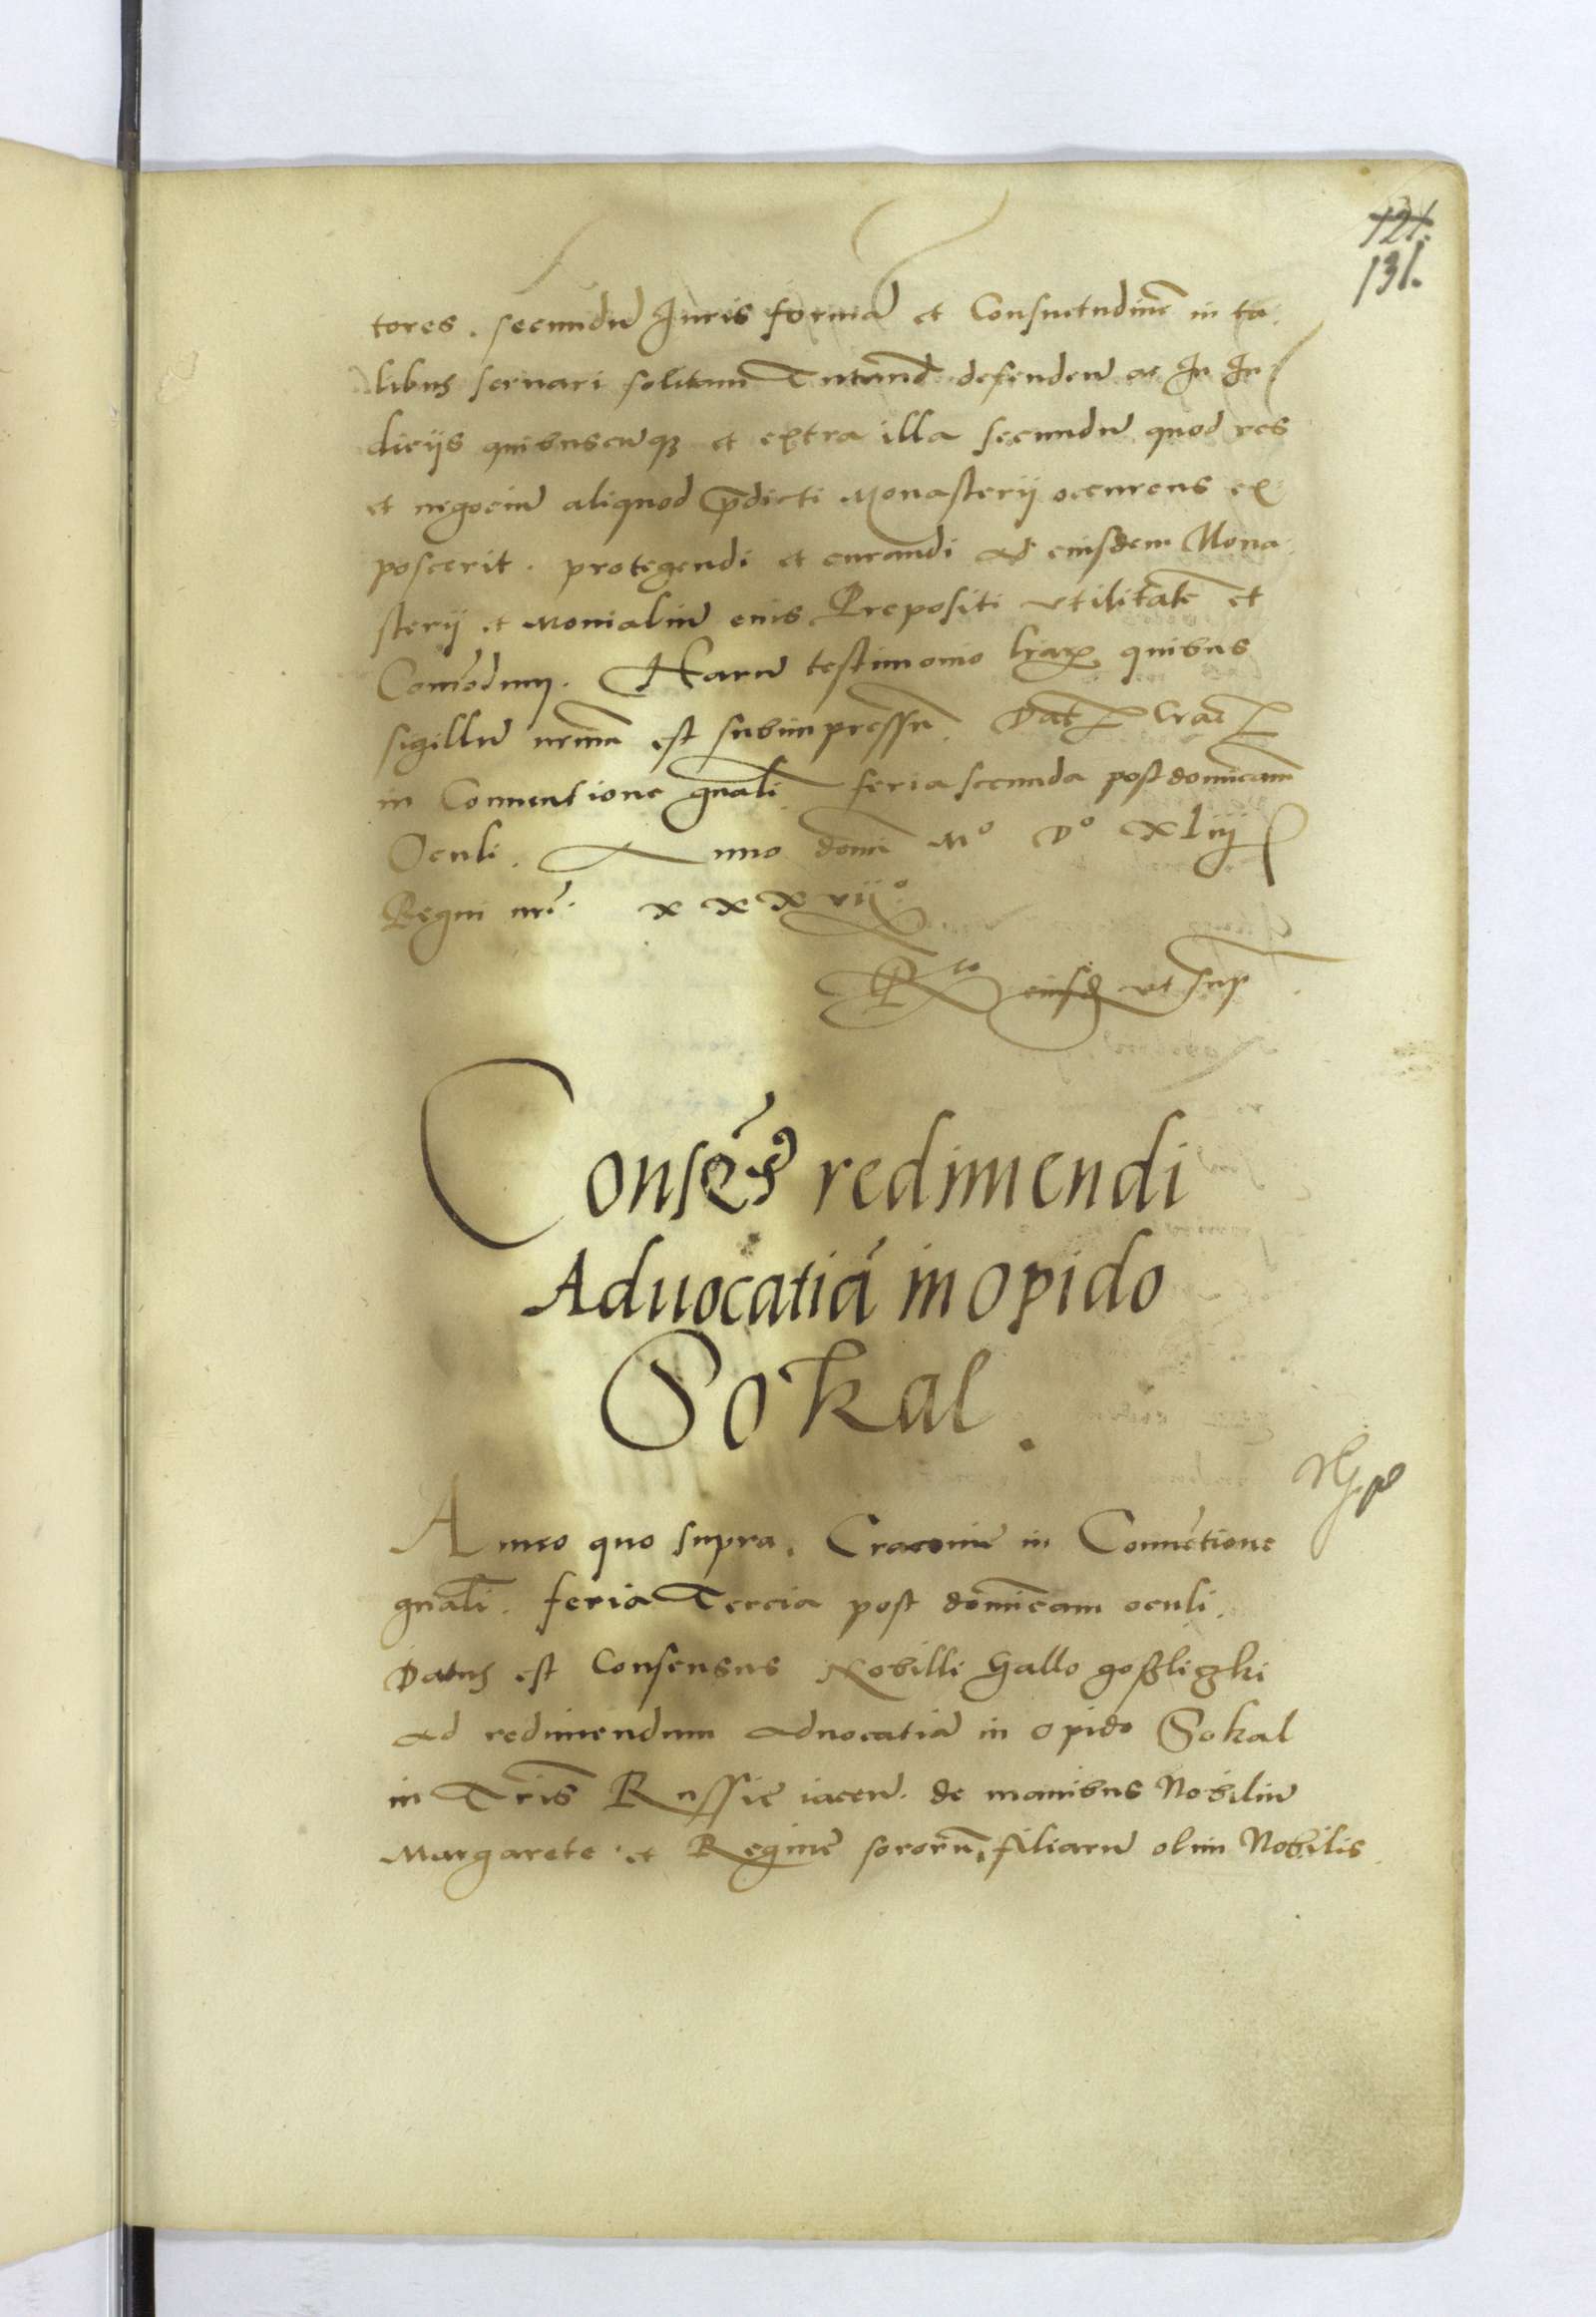 121.
131.
tores. secundũ Juris formã et Consuetudinẽ in ta,
libus seruari solitam Tutand defendeñ ac In Ju
dicijs quibuscũqꝫ et extra illa secundũ quod res
et negociũ aliquod p̃dicti Monasterij occurens ex,
poscerit. protegendi et curandi ad eiusdem Mona,
sterij et Monialiũ eius Prepositi vtilitatẽ et
Com̃odum. Harũ testimonio lr̃aꝝ quibus
sigillũ nr̃um est subimpressũ. Dat Crac
in Conuentione gñali feria secunda post dominicam
Oculi. Anno domĩ Mº Dº xliij
Regni nr̃i. xxxvijº.
Rto eiusdẽ vt sup
Consẽsꝰ redimendi
Aduocatiã in opido
Sokal.
Anno quo supra. Cracouiẽ in Conuẽtione
gñali. feria Tercia post dominicam oculi.
Datus est Consensus Nobilli Gallo goßligki
ad redimendum aduocatiã in opido Sokal
in Tr̃is Russie iaceñ. de manibus Nobiliũ
Margarete et Regine sororũ, filiarũ olim Nobilis